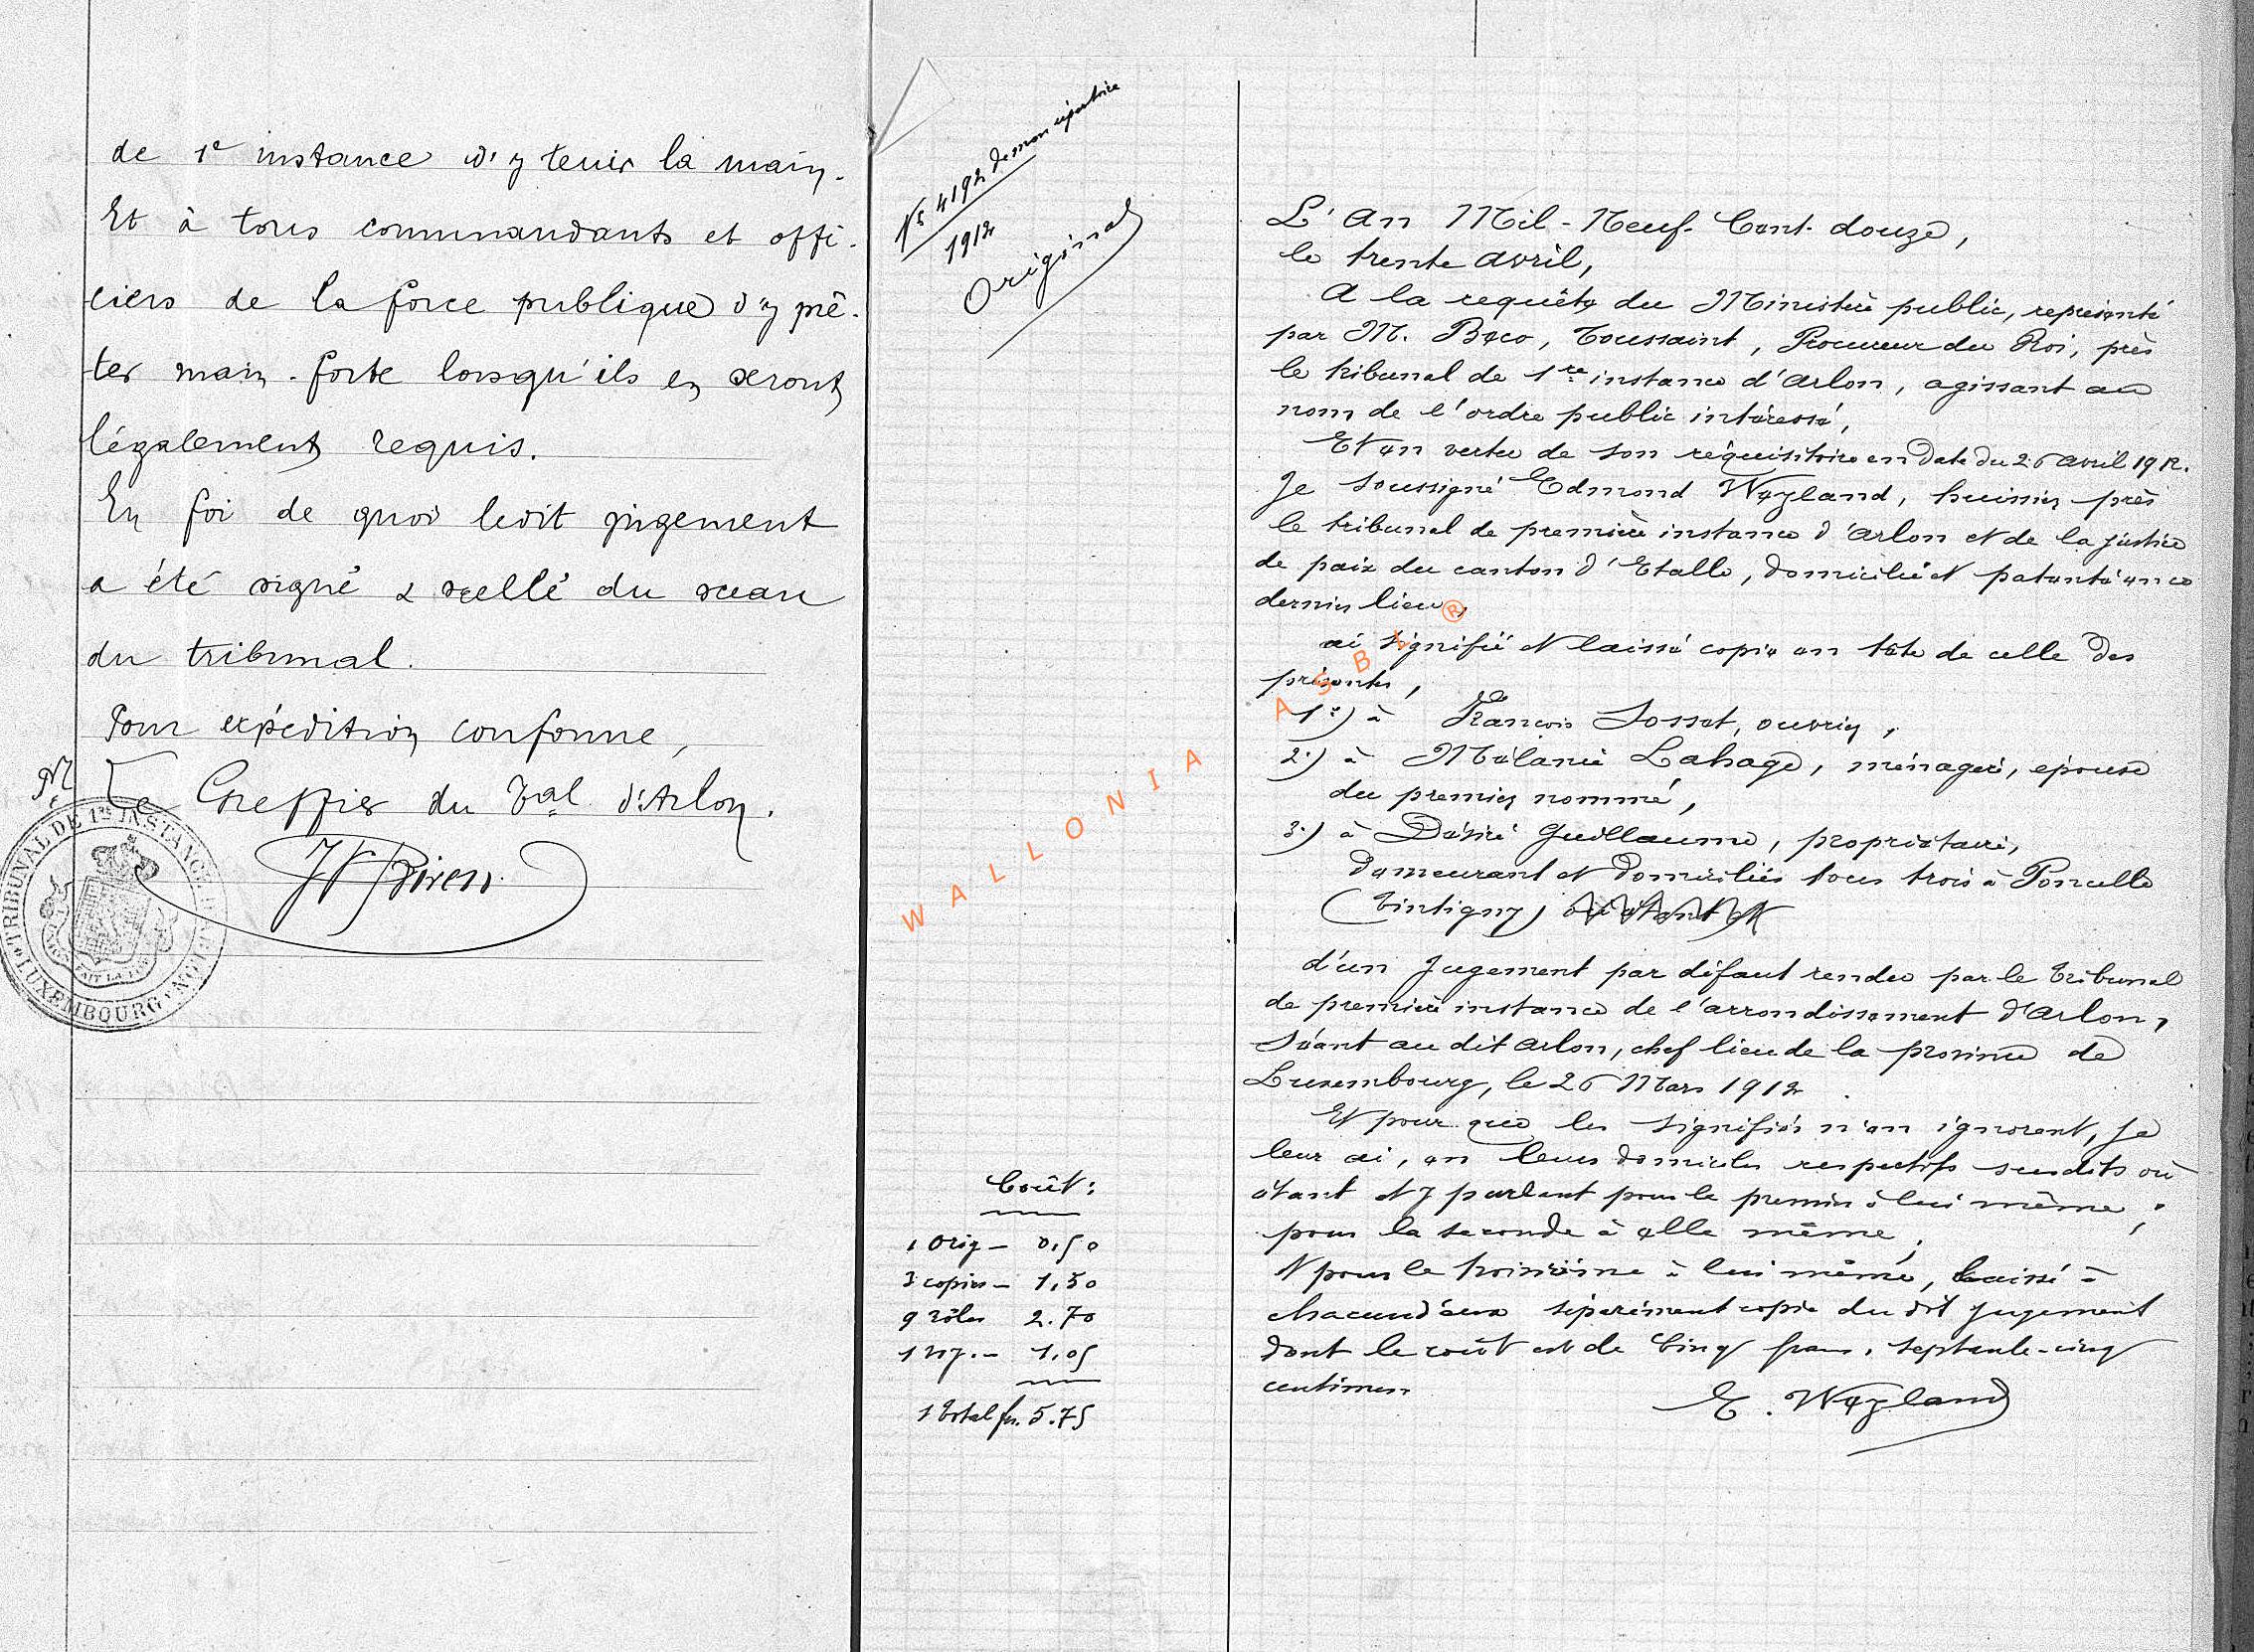 de 1e instance d'y tenir la main.
Et à tous commandants et offi-
ciers de la force publique d'y prê-
ter main-forte lorsqu'ils en seront
légalement requis.
En foi de quoi ledit jugement
a été signé & scellé du sceau
du tribunal.
Pour expédition conforme,
Le Greffier du Tal d'Arlon.
TRIBUNAL DE 1RE INSTANCE
LUXEMBOURG
No 4192 de mon répertoire
1912
Original
Coût:
1 Orig - 0,50
3 copies - 1,50
9 rôles 2.70
1,05
1 Total fr. 5.75
L'An Mil-Neuf-Cent-douze,
le trente avril,
A la requête du Ministère public, représenté
par M. Beco, Toussaint, Procureur du Roi, près
le tribunal de 1re instance d'Arlon, agissant au
nom de l'ordre public intéressé,
Et en vertu de son réquisitoire en date du 26 avril 1912.
Je soussigné Edmond Weyland, huissier près
le tribunal de première instance d'Arlon et de la justice
de paix du canton d'Etalle, domicilié et patenté en ce
dernier lieu,
ai signifié et laissé copie en tête de celle des
présentes,
1°) à François Josset, ouvrier,
2°) à Mélanie Lahage, ménagère, épouse
du premier nommé,
3°) à Désiré Guillaume, propriétaire,
demeurant et domiciliés tous trois à Poncelle
(Tintigny)
d'un jugement par défaut rendu par le Tribunal
de première instance de l'arrondissement d'Arlon,
séant au dit Arlon, chef lieu de la province de
Luxembourg, le 26 Mars 1912.
Et pour que les signifiés n'en ignorent, je
leur ai, en leurs domiciles respectifs susdits où
étant et y parlant pour le premier à lui même;
pour la seconde à elle même;
et pour le troisième à lui même, laissé à
chacun d'eux séparément copie du dit jugement
dont le coût est de Cinq francs, septante-cinq
centimes.
E. Weyland
WALLONIA ASBL ®